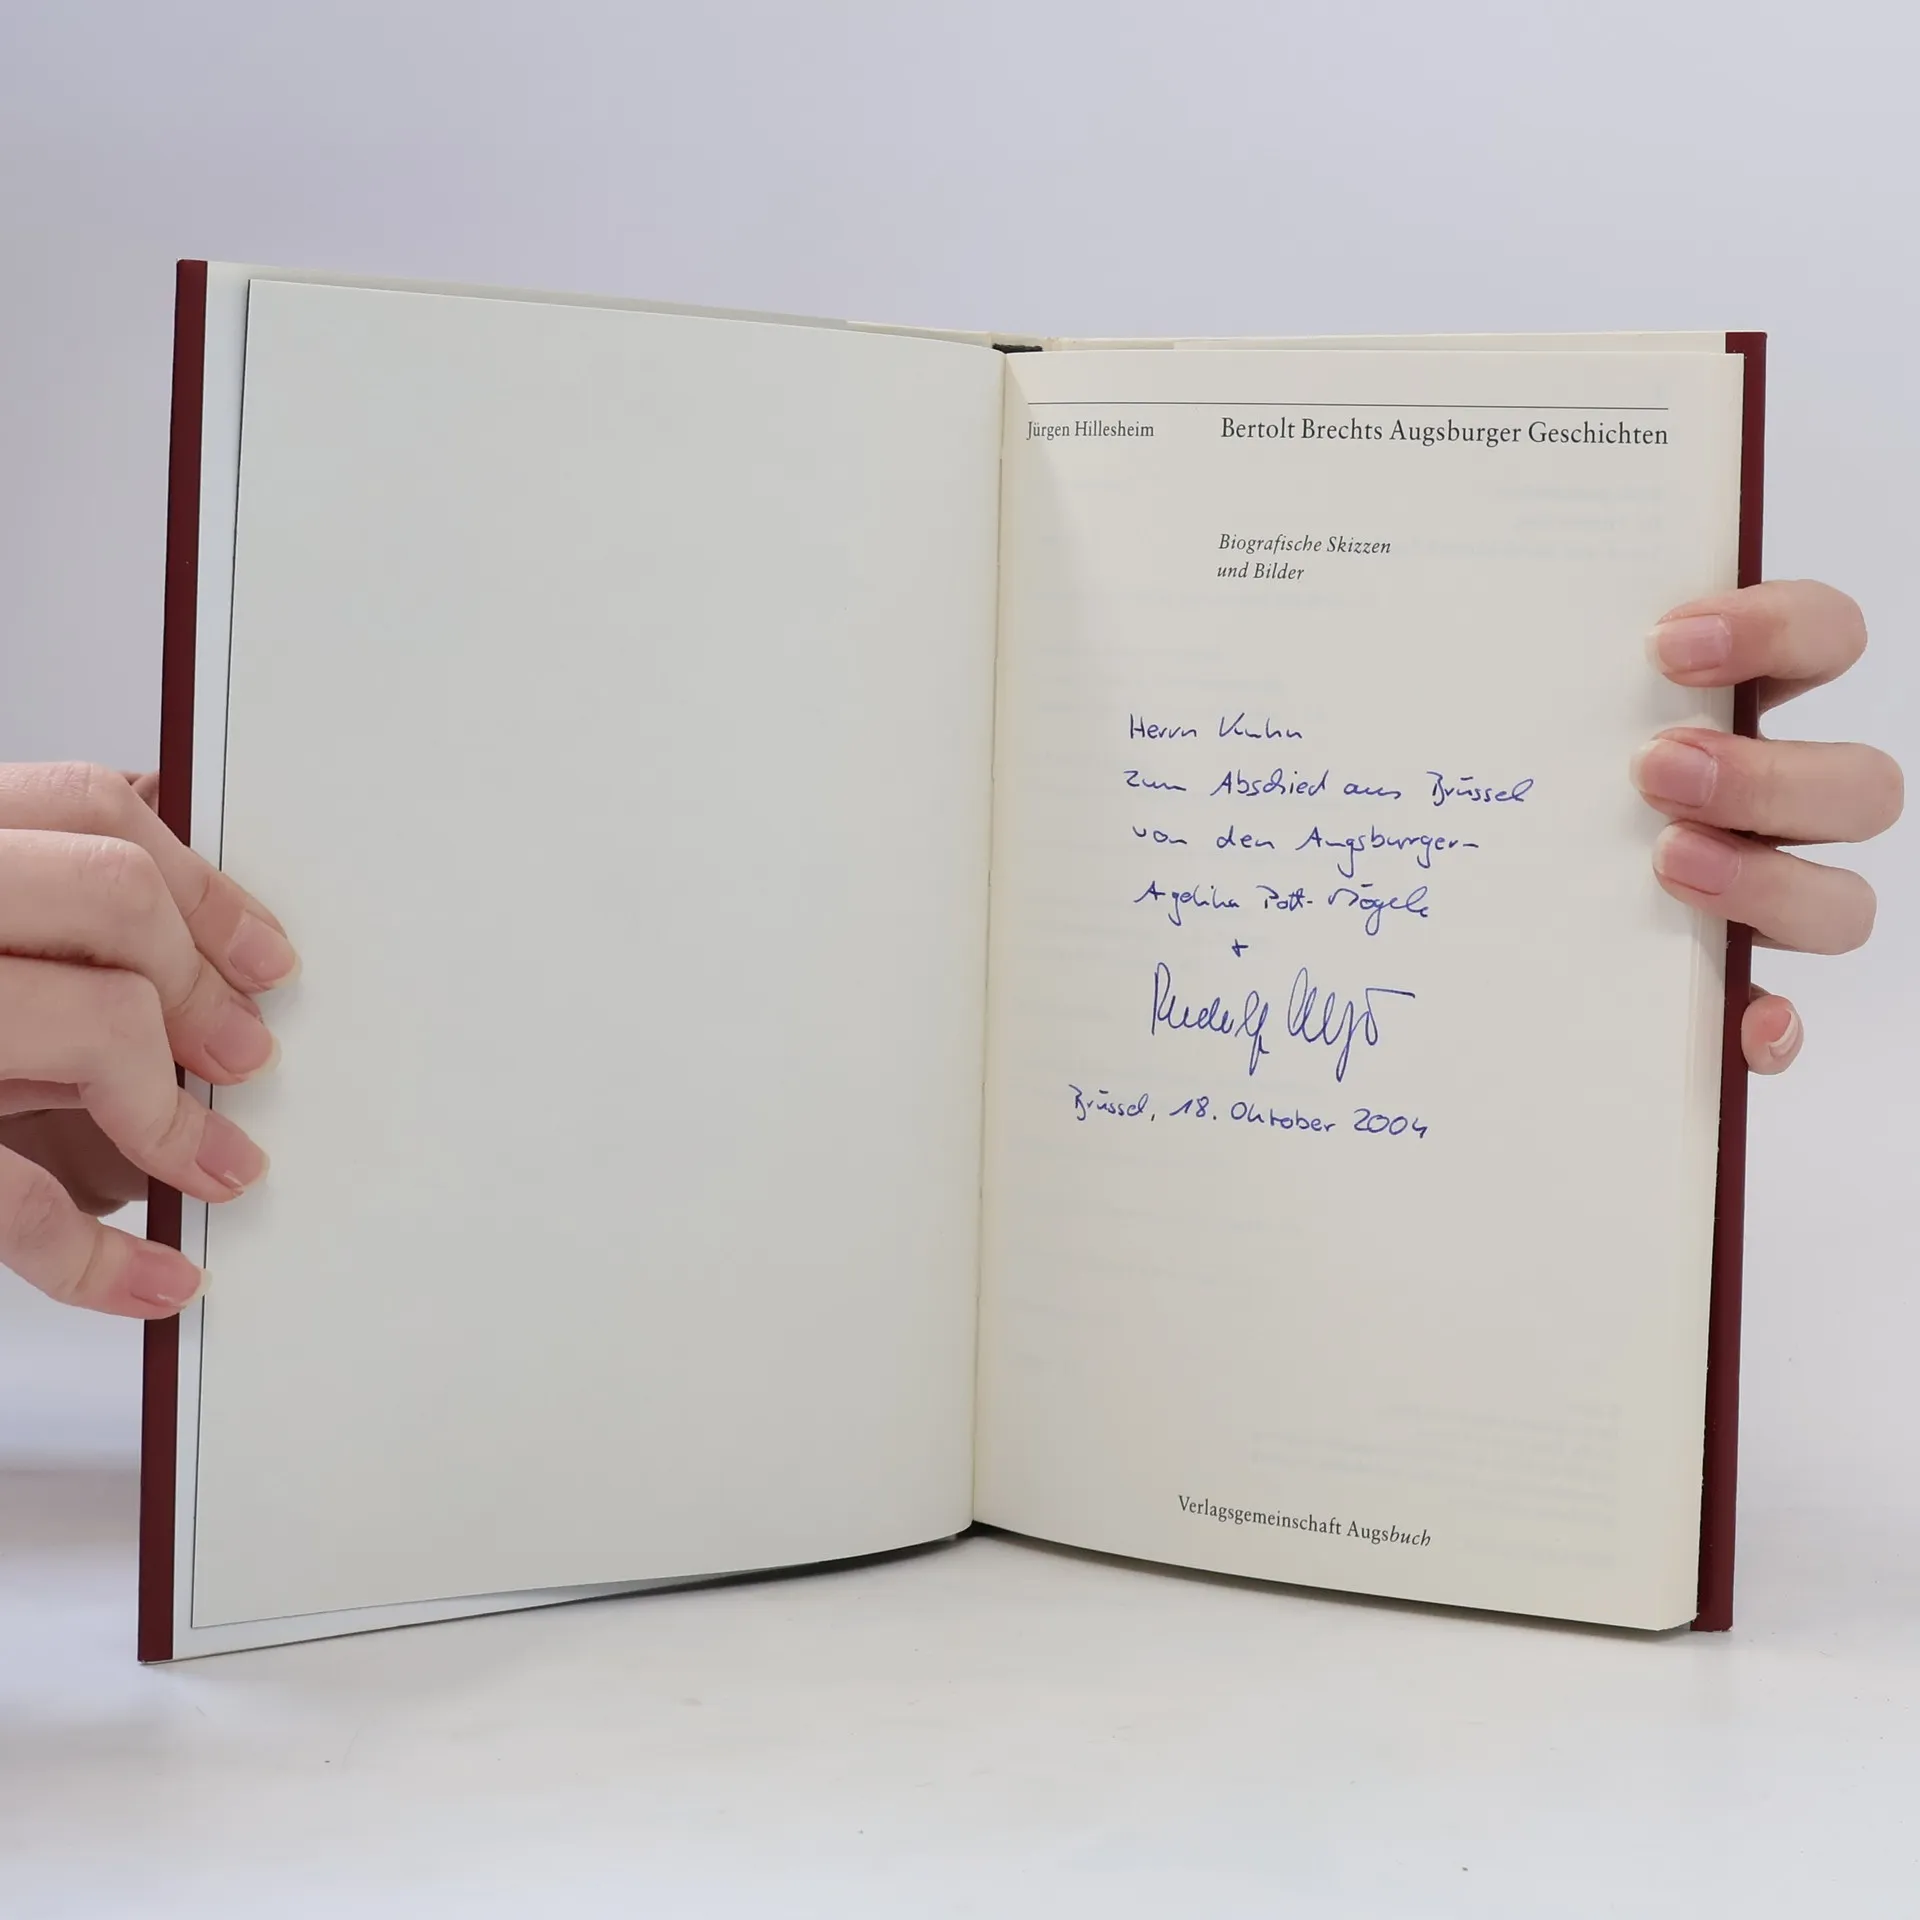 Jürgen Hillesheim Bertolt Brechts Augsburger Geschichten
Biografische Skizzen
und Bilder
Herrn Kuhn
zum Abschied aus Brüssel
von den Augsburger-
Pott-
+
Rudolf
Brüssel, 18. Oktober 2004
Verlagsgemeinschaft Augsbuch